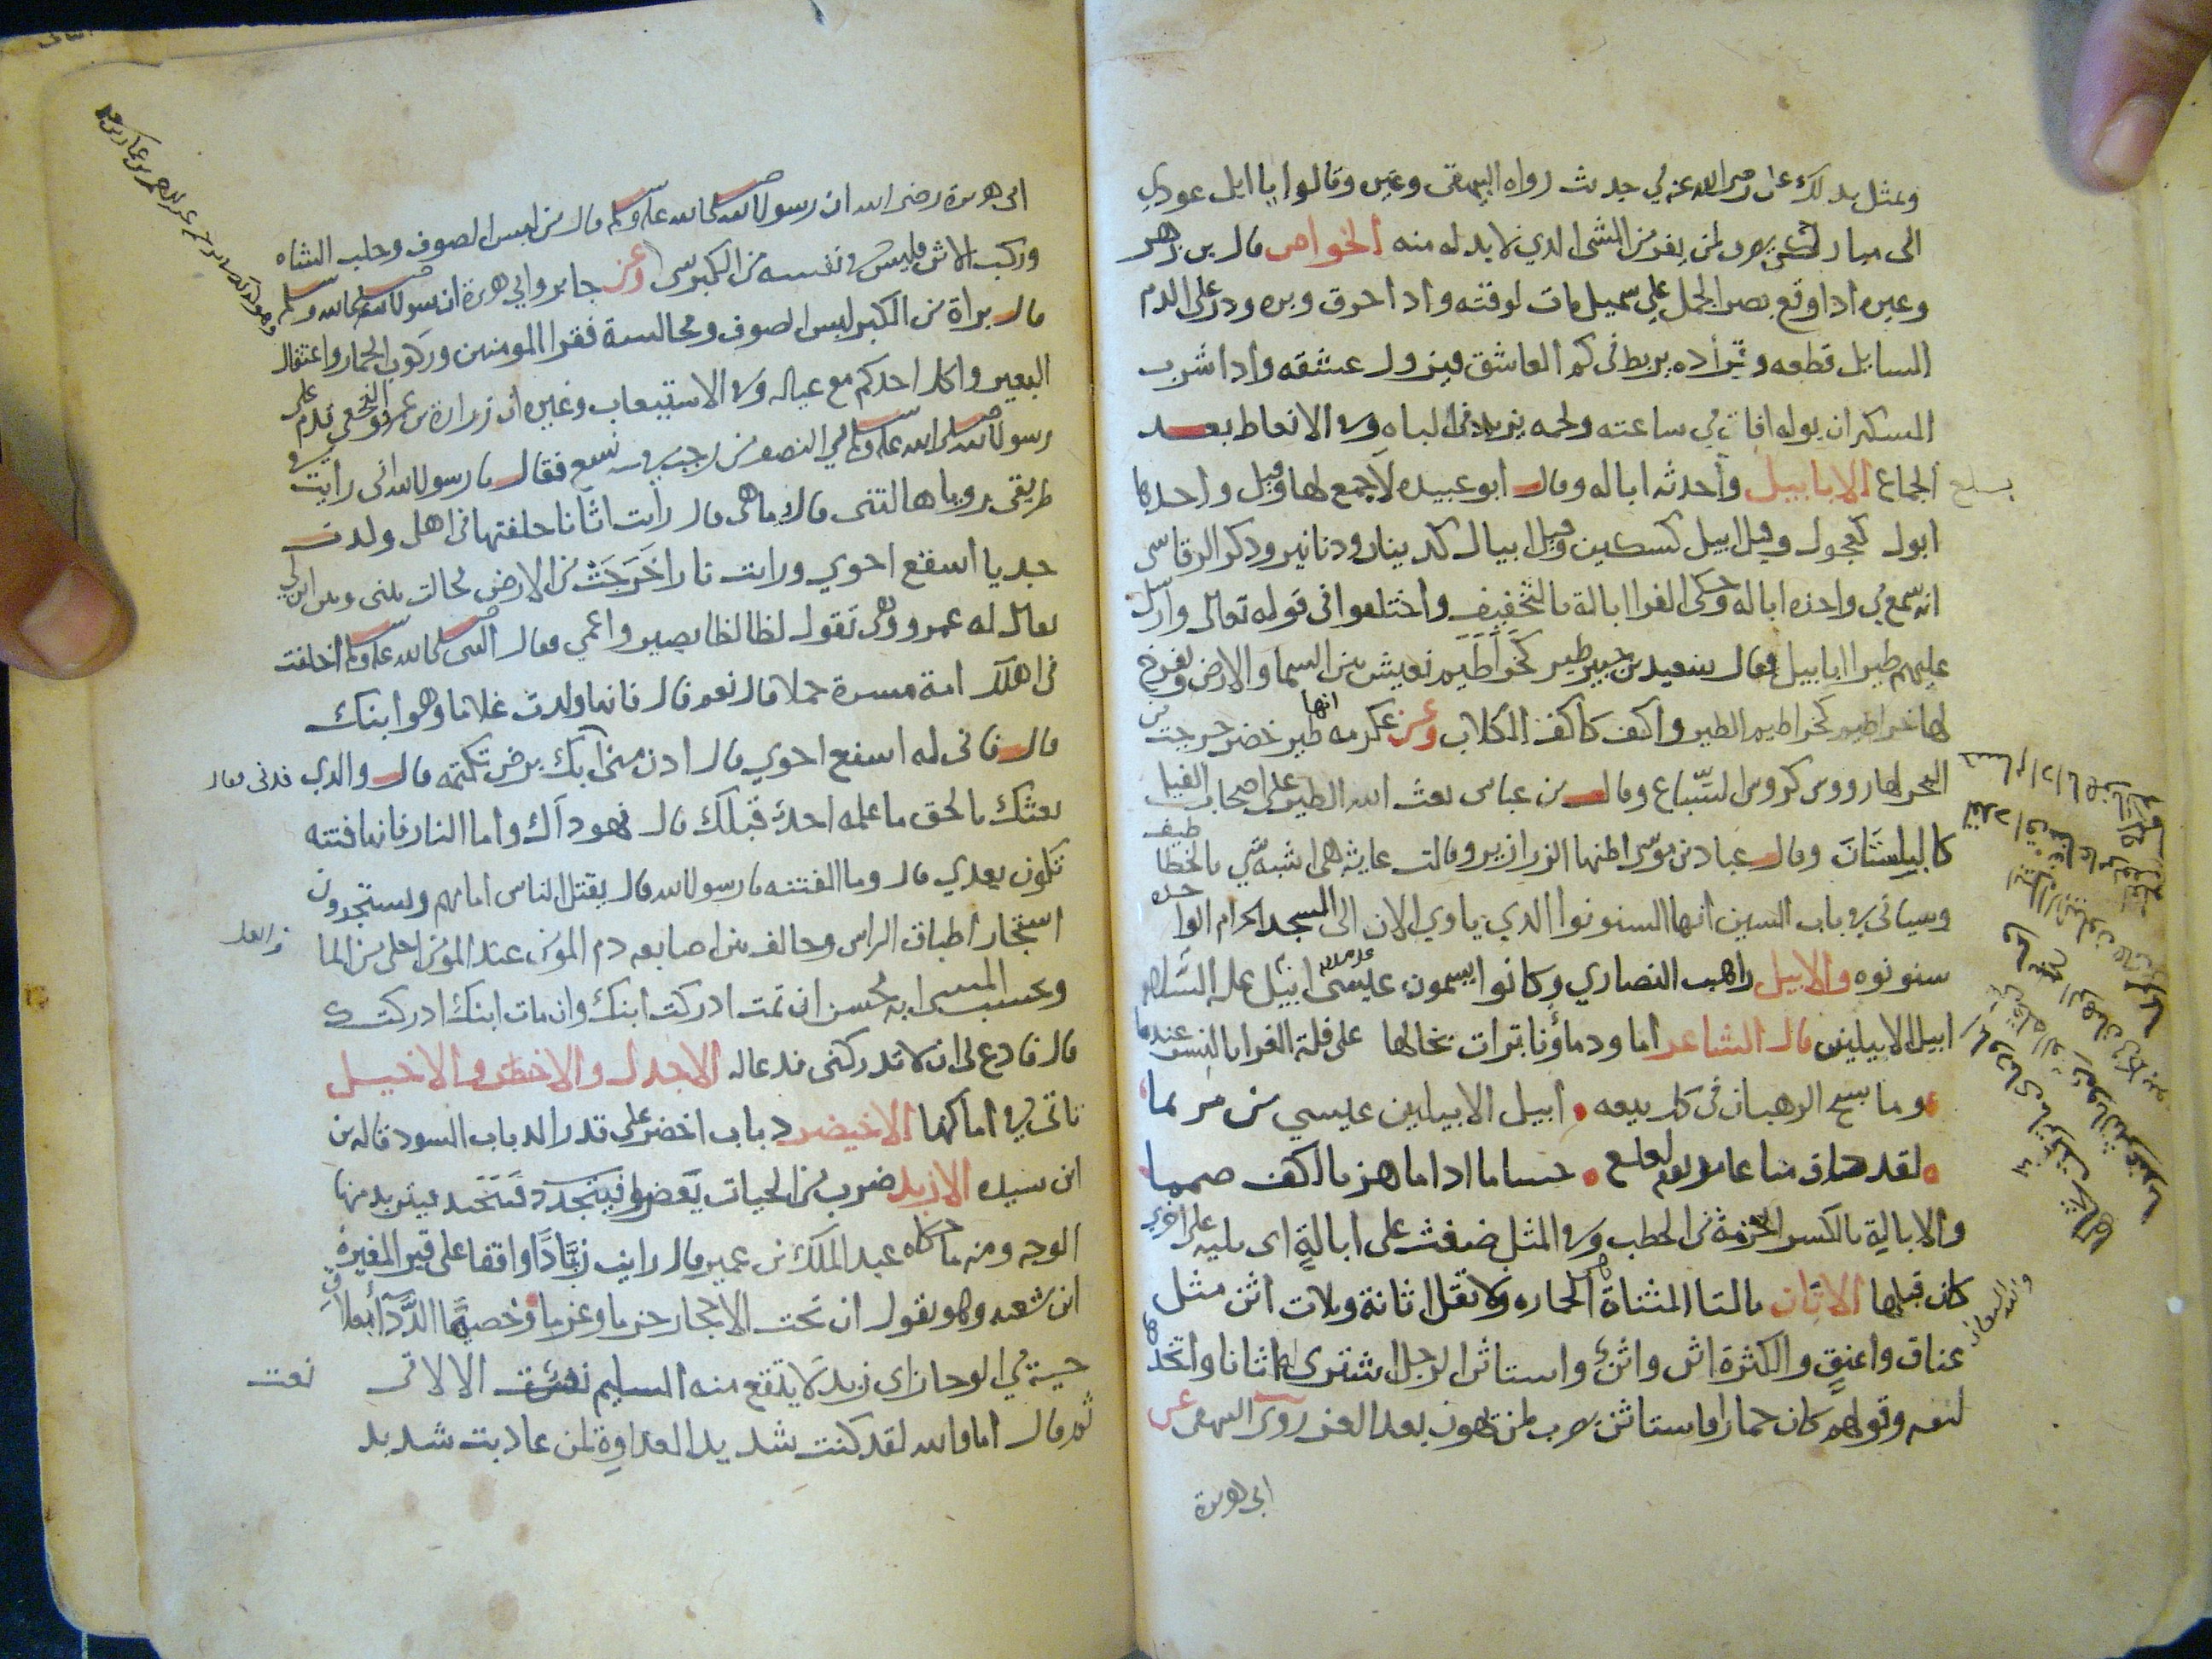 وتمثل بذلك على رضي الله عنه في حديث رواه البيهقي وغيره وقالوا يا ابل عودي
الى مباركك يضرب لمن يفر من الشي الذي لا بد له منه الخواص قال بن زهر
وغيره اذا وقع بصر الجمل على سهيل مات لوقته واذا احرق وبره وذر على الدم
السايل قطعه وقراده يربط في كم العاشق فيزول عشقه واذا شرب
السكران بوله افاق في ساعته ولحمه يزيد في الباه وفي الانعاظ بعد
الجماع الابابيل واحدته ابالة وقال ابو عبيده لا جمع لها وقيل واحدها
ابول كعجول وقيل ابيل كسكين وقيل ابيال كدينار ودنانير وذكر الرقاشي
انه سمع في واحده ابالة وحكى الفرا ابالة بالتخفيف واختلفوا في قوله تعالى وارسل
عليهم طيرا ابابيل فقال سعيد بن جبير طير تعيش بين السما والارض وتفرخ
لها خراطيم كخراطيم الطير واكف كاكف الكلاب وعن عكرمه انها طير خضر خرجت من
البحر لها رووس كروس السباع وقال بن عباس بعث الله الطير على اصحاب الفيل
كالبلسان وقال عباد بن موسى اظنها الزرازير وقالت عايشه هي اشبه شي بالخطاطيف
وسياتي في باب السين انها السنونوا الذي ياوي الان الى المسجد الحرام الواحده
سنونوه والابيل راهب النصاري وكانوا يسمون عيسى بن مريم ابيل
ابيل الابيلين قال الشاعر اما ودماؤنا ترات تخالها على قلة الفرا بالنسر عندما
وما سبح الرهبان في كل بيعه ابيل الابيلين عيسي بن مريما
لقد ذاق منا عامر يوم لعلع حساما اذا ما هز بالكف صمما
والابالة بالكسر الحزمة من الحطب وفي المثل ضغث على ابالة اى بليه على اخرى
كان قبلها الاتان بالتا المثناة الحماره ولا تقل اتانة وثلاث اتن مثل
عناق واعنق والكثرة اتن واتن واستاتن الرجل اشترى اتانا واتخذها
لنفسه وقولهم كان حمارا فاستاتن يضرب لمن يهون بعد العز روى البيهقي عن
ابي هريرة
ابى هريرة رضي الله ان رسول الله صلى الله عليه وسلم قال من لبس الصوف وحلب الشاه
وركب الاتن فليس في نفسه من الكبر شى وعن جابر وابي هريرة ان رسول الله صلى الله عليه وسلم
قال براة من الكبر لبس الصوف ومجالسة فقرا المومنين وركوب الحمار واعتقال
البعير واكل احدكم مع عياله وفي الاستيعاب وغيره ان زرارة بن عمرو النخعي قدم على
رسول الله صلى الله عليه وسلم في النصف من رجب سنه تسع فقال يا رسول الله انى رايت في
طريقى رويا هالتنى قال وما هى قال رأيت اتانا خلفتها فى اهلى ولدت
جديا اسفع احوي ورايت نارا خرجت من الارض فحالت بينى وبين ابن لي
يقال له عمرو وهي تقول لظا لظا بصير واعمي فقال النبى صلى الله عليه وسلم اخلفت
في اهلك امة مسرة حملا قال نعم قال فانها ولدت غلاما وهو ابنك
قال فانى له اسفع احوي قال ادن مني ابك برص تكتمه قال والدي
بعثك بالحق ما علمه احد قبلك قال فهو ذاك واما النار فانها فتنه
تكون بعدي قال وما الفتنه يا رسول الله قال يقتل الناس امامهم ويستجرون
استجار اطباق الراس وخالف بين اصابعه دم المومن عند المومن احلى من الما
يحسب المسى انه محسن ان تمت ادركت ابنك وان مات ابنك ادركتك
قال فادع لي ان لا تدركنى فدعا له الاجدل والاخطب والاخيل
تاتى في اماكنها الاخيضر ذباب اخضر على قدر الذباب السود قاله بن
ابن سيده الاربد ضرب من الحيات يعض فيتربد منها
الوجه ومنه ما حكاه عبد الملك بن عمير قال رايت زيادا واقفا على قبر المغيرة
ابن شعبه وهو يقول ان تحت الاحجار حزما وعزما وخصيما
حية في الوجار اى زبد لا ينفع منه السليم نفث الراقى
ثم قال اما والله لقد كنت شديد العداوة لمن عاديت شديد